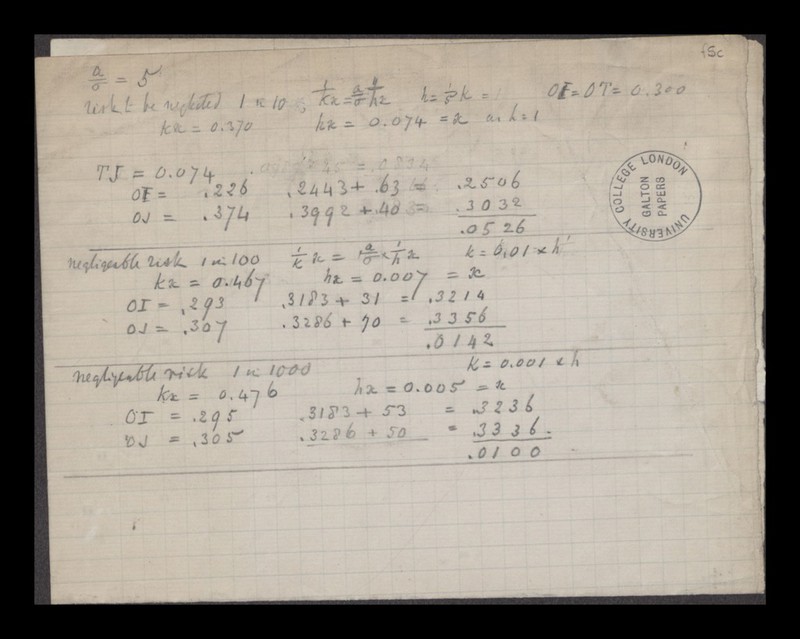 f5c
a/σ = 5
risk to be neglected 1 in 10; 1/kx = a/σ 1/hx h = 1/5 k = 1 OF = OT = 0.300
kx = 0.370 hx = 0.074 = x as h = 1
TJ = 0.074
OI = .226 .2443 + .63 = .2506
OJ = .374 .3992 + .40 = .3032
.0526
negligeable risk 1 in 100 1/k x = a/σ × 1/h x k = 0.01 × h
kx = 0.467 hx = 0.007 = x
OI = .293 .3183 + 31 = .3214
OJ = .307 .3286 + 70 = .3356
.0142
negligeable risk 1 in 1000 k = 0.001 × h
kx = 0.476 hx = 0.005 = x
OI = .295 .3183 + 53 = .3236
OJ = .305 .3286 + 50 = .3336.
.0100
UNIVERSITY COLLEGE LONDON
GALTON
PAPERS